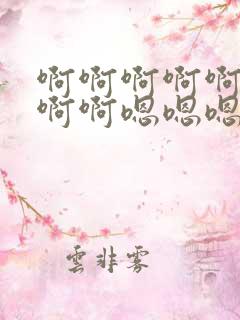 啊啊啊啊啊
啊啊嗯嗯嗯
雲非雾